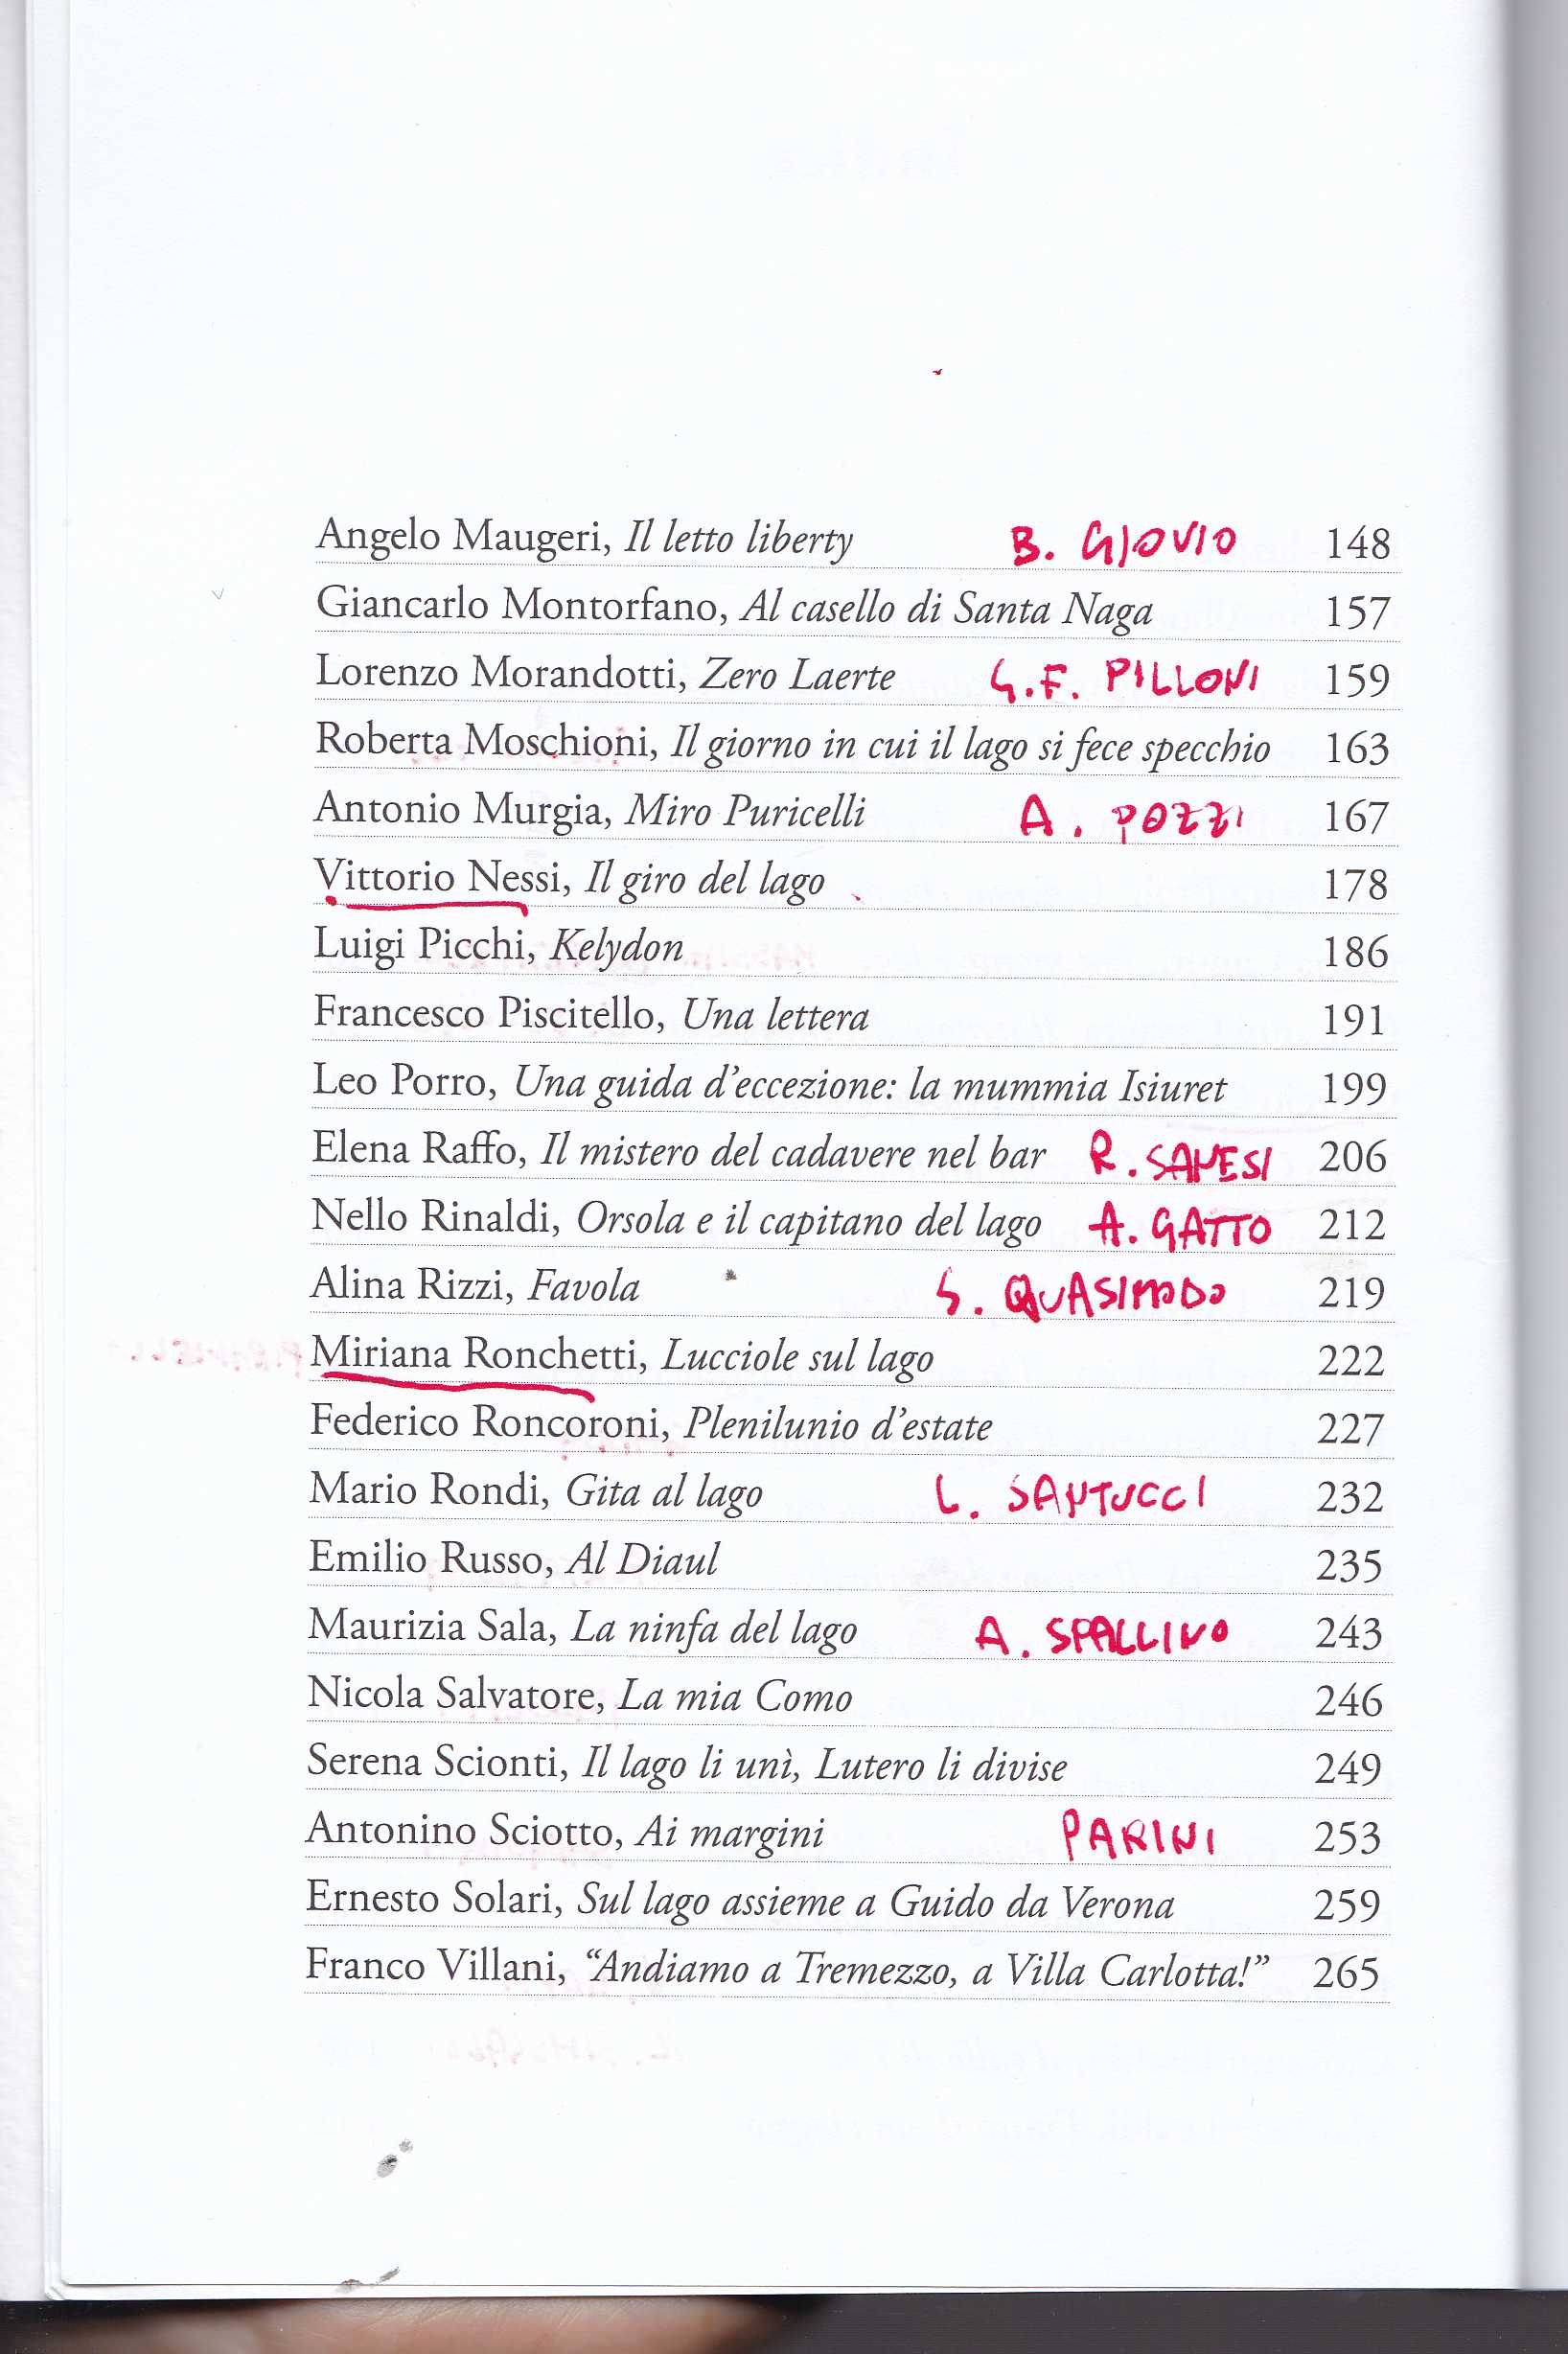 Angelo Maugeri, Il letto liberty B. GIOVIO 148
Giancarlo Montorfano, Al casello di Santa Naga 157
Lorenzo Morandotti, Zero Laerte G.F. PILLONI 159
Roberta Moschioni, Il giorno in cui il lago si fece specchio 163
Antonio Murgia, Miro Puricelli A. POZZI 167
Vittorio Nessi, Il giro del lago 178
Luigi Picchi, Kelydon 186
Francesco Piscitello, Una lettera 191
Leo Porro, Una guida d'eccezione: la mummia Isiuret 199
Elena Raffo, Il mistero del cadavere nel bar R. SANESI 206
Nello Rinaldi, Orsola e il capitano del lago A. GATTO 212
Alina Rizzi, Favola S. QUASIMODO 219
Miriana Ronchetti, Lucciole sul lago 222
Federico Roncoroni, Plenilunio d'estate 227
Mario Rondi, Gita al lago L. SANTUCCI 232
Emilio Russo, Al Diaul 235
Maurizia Sala, La ninfa del lago A. SPALLINO 243
Nicola Salvatore, La mia Como 246
Serena Scionti, Il lago li unì, Lutero li divise 249
Antonino Sciotto, Ai margini PARINI 253
Ernesto Solari, Sul lago assieme a Guido da Verona 259
Franco Villani, “Andiamo a Tremezzo, a Villa Carlotta!” 265